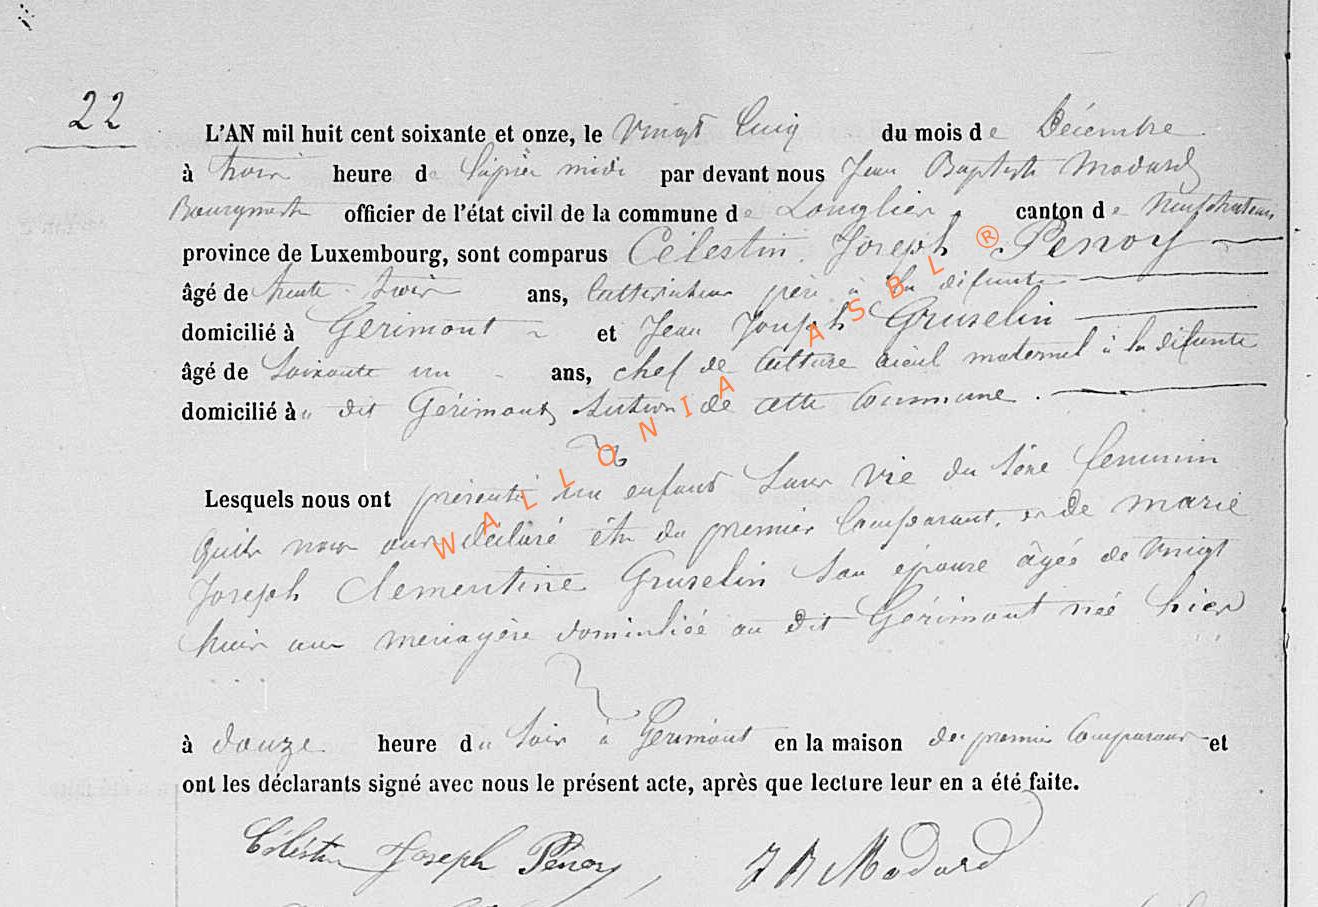 22
L'AN mil huit cent soixante et onze, le vingt Cinq du mois de Décembre
à trois heure de l'après midi par devant nous Jean Baptiste Modard
Bourgmestre officier de l'état civil de la commune de Longlier, canton de Neufchateau
province de Luxembourg, sont comparus Célestin Joseph Penoy
âgé de trente trois ans, Cultivateur père à la défunte
domicilié à Gerimont et Jean Joseph Gruselin
âgé de Soixante un ans, chef de Culture aïeul maternel à la défunte
domicilié à u dit Gérimont, Section de cette Commune.
Lesquels nous ont présenté un enfant Sans vie du Sexe feminin
quils nous ont déclaré être du premier Comparant, et de marie
Joseph Clementine Gruselin Son épouse âgée de Vingt
huit ans menagère domiciliée au dit Gérimont née hier
à douze heure du Soir à Gerimont en la maison du premier Comparant et
ont les déclarants signé avec nous le présent acte, après que lecture leur en a été faite.
Célestin Joseph Penoy J B Modard
WALLONIA ASBL ®